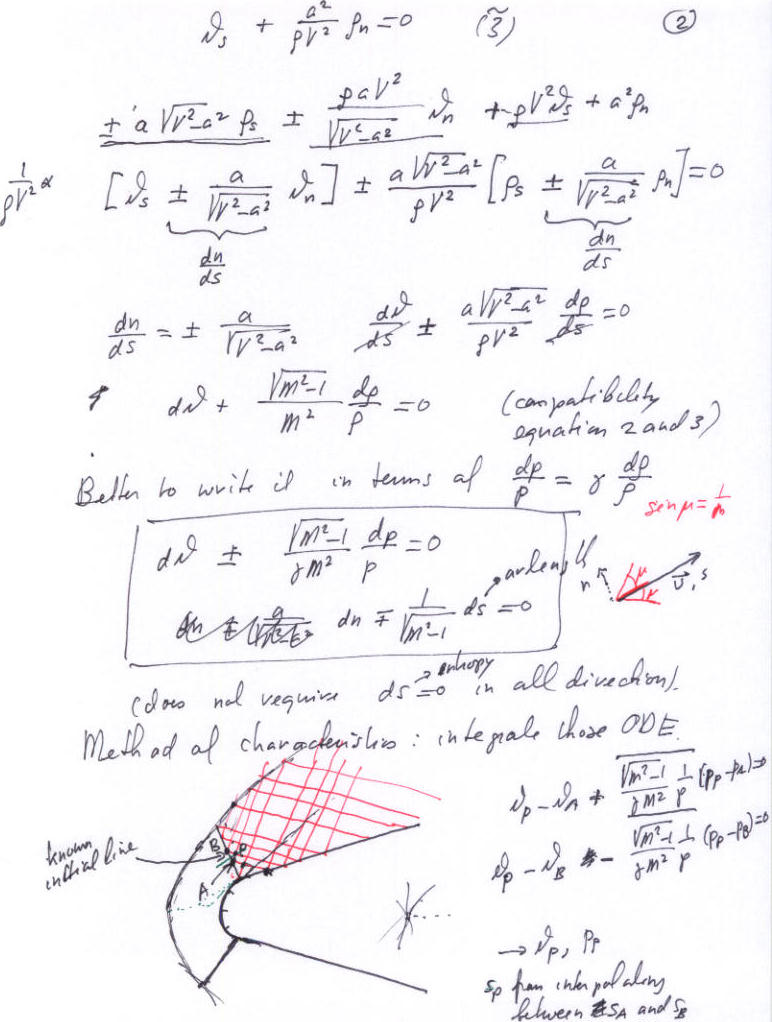 ϑ_s + a²/(ρV²) ρ_n = 0 (3̃) ②
± a √(V²-a²) ρ_s ± ρaV²/√(V²-a²) ϑ_n + ρV²ϑ_s + a²ρ_n
1/(ρV²) × [ϑ_s ± a/√(V²-a²) ϑ_n] ± a√(V²-a²)/(ρV²) [ρ_s ± a/√(V²-a²) ρ_n] = 0
dn/ds dn/ds
dn/ds = ± a/√(V²-a²) dϑ/ds ± a√(V²-a²)/(ρV²) dρ/ds = 0
dϑ + √(M²-1)/M² dρ/ρ = 0 (compatibility
equation 2 and 3)
Better to write it in terms of dp/p = γ dρ/ρ
sin μ = 1/M
dϑ ± √(M²-1)/(γM²) dp/p = 0
dn ∓ 1/√(M²-1) ds = 0
n μ μ V, s
(does not require ds = 0 in all direction).
entropy
Method of characteristics: integrate those ODE.
known
initial line
B P
A
ϑ_P - ϑ_A + √(M²-1)/(γM²) 1/p (p_P - p_A) = 0
ϑ_P - ϑ_B - √(M²-1)/(γM²) 1/p (p_P - p_B) = 0
→ ϑ_P, p_P
s_P from interpolating
between s_A and s_B